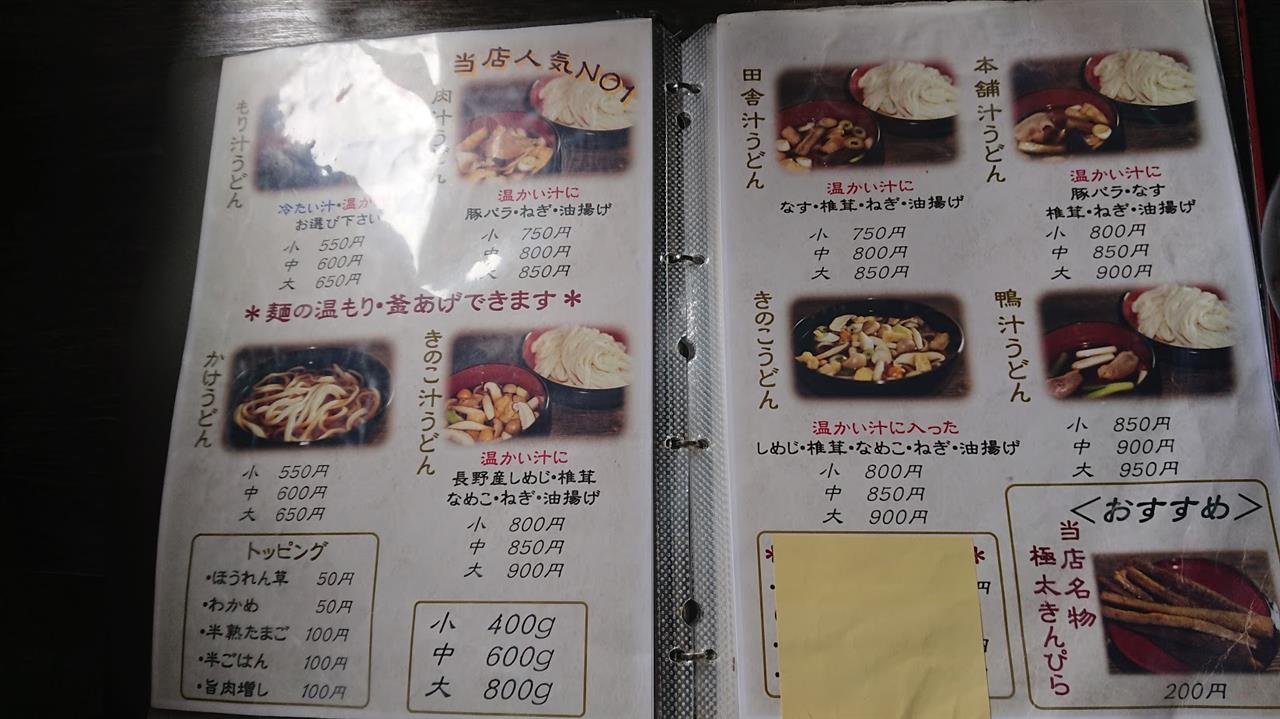 当店人気NO1
もり汁うどん
冷たい汁・温か
お選び下さい
小 550円
中 600円
大 650円
肉汁うどん
温かい汁に
豚バラ・ねぎ・油揚げ
小 750円
中 800円
大 850円
＊麺の温もり・釜あげできます＊
かけうどん
小 550円
中 600円
大 650円
きのこ汁うどん
温かい汁に
長野産しめじ・椎茸
なめこ・ねぎ・油揚げ
小 800円
中 850円
大 900円
トッピング
・ほうれん草 50円
・わかめ 50円
・半熟たまご 100円
・半ごはん 100円
・旨肉増し 100円
小 400g
中 600g
大 800g
田舎汁うどん
温かい汁に
なす・椎茸・ねぎ・油揚げ
小 750円
中 800円
大 850円
本舗汁うどん
温かい汁に
豚バラ・なす
椎茸・ねぎ・油揚げ
小 800円
中 850円
大 900円
きのこうどん
温かい汁に入った
しめじ・椎茸・なめこ・ねぎ・油揚げ
小 800円
中 850円
大 900円
鴨汁うどん
小 850円
中 900円
大 950円
＜おすすめ＞
当店名物
極太きんぴら
200円